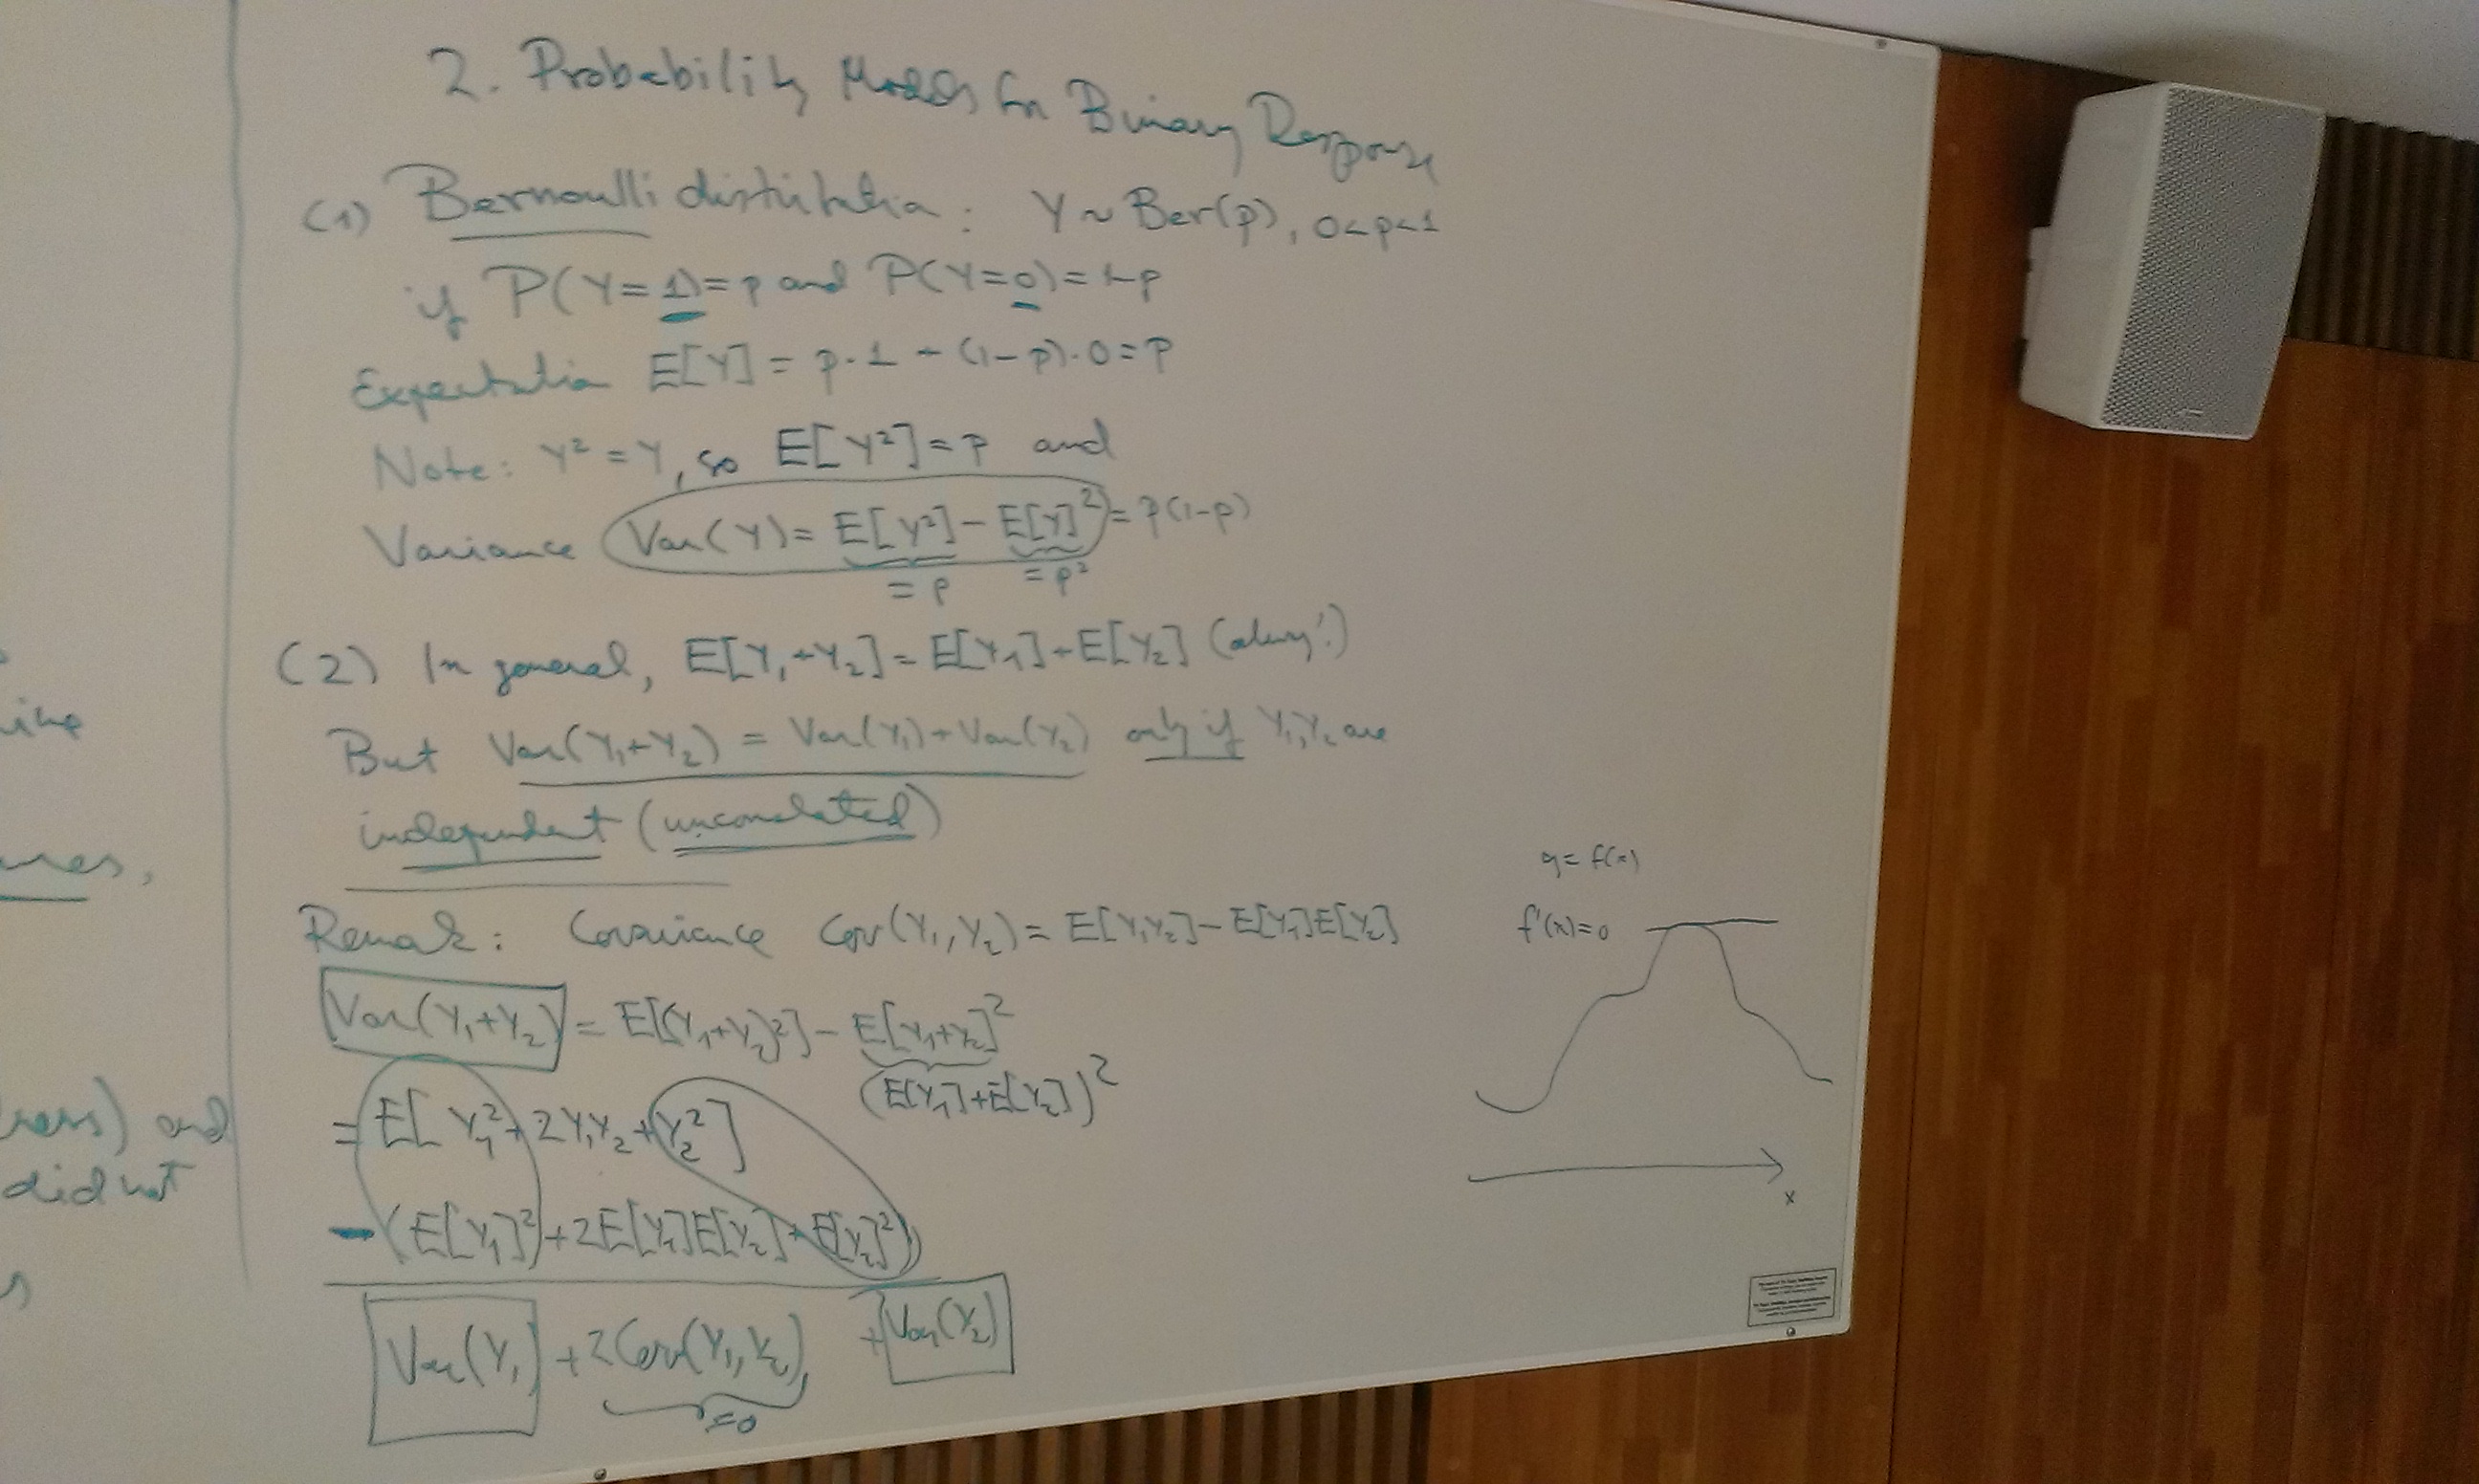 2. Probability Models for Binary Response
(1) Bernoulli distribution: Y ~ Ber(p), 0<p<1
if P(Y=1)=p and P(Y=0)=1-p
Expectation E[Y] = p·1 + (1-p)·0 = p
Note: Y² = Y, so E[Y²] = p and
Variance Var(Y) = E[Y²] - E[Y]² = p(1-p)
= p = p²
(2) In general, E[Y₁+Y₂] = E[Y₁]+E[Y₂] (always!)
But Var(Y₁+Y₂) = Var(Y₁)+Var(Y₂) only if Y₁,Y₂ are
independent (uncorrelated)
Remark: Covariance Cov(Y₁,Y₂) = E[Y₁Y₂] - E[Y₁]E[Y₂]
Var(Y₁+Y₂) = E[(Y₁+Y₂)²] - E[Y₁+Y₂]²
(E[Y₁]+E[Y₂])²
= E[Y₁² + 2Y₁Y₂ + Y₂²]
- (E[Y₁]² + 2E[Y₁]E[Y₂] + E[Y₂]²)
Var(Y₁) + 2Cov(Y₁,Y₂) + Var(Y₂)
=0
y = f(x)
f'(x)=0
x
and
did not